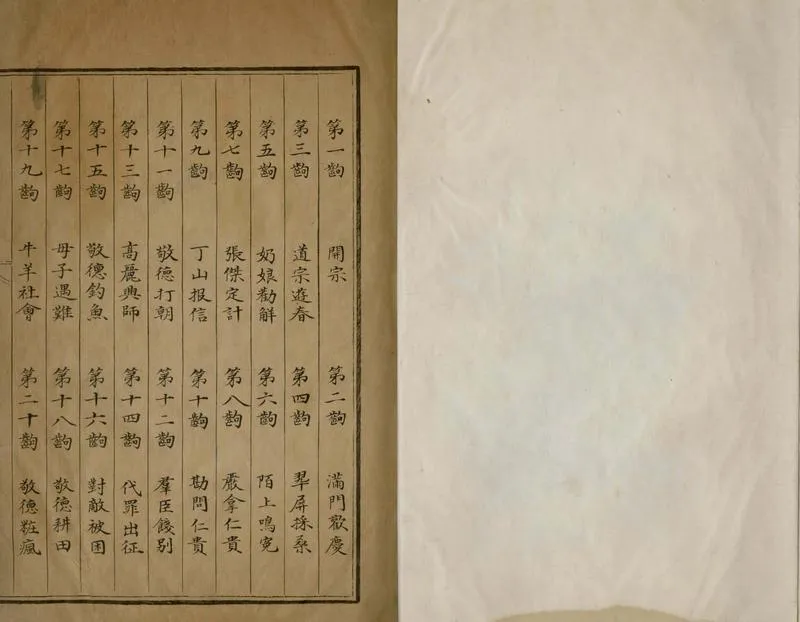 第一齣 開宗 第二齣 滿門歡慶
第三齣 道宗遊春 第四齣 翠屏採桑
第五齣 奶娘勸解 第六齣 陌上鳴冤
第七齣 張傑定計 第八齣 嚴拿仁貴
第九齣 丁山报信 第十齣 勘問仁貴
第十一齣 敬德打朝 第十二齣 羣臣餞别
第十三齣 高麗興師 第十四齣 代罪出征
第十五齣 敬德釣魚 第十六齣 對敵被困
第十七齣 母子遇難 第十八齣 敬德耕田
第十九齣 牛羊社會 第二十齣 敬德粧瘋